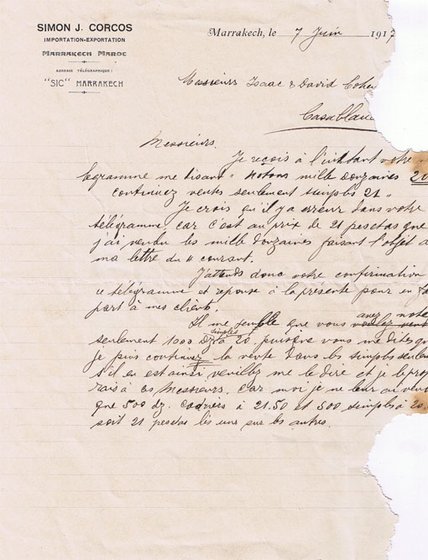 SIMON J. CORCOS
IMPORTATION-EXPORTATION
MARRAKECH MAROC
ADRESSE TÉLÉGRAPHIQUE:
"SIC" MARRAKECH
Marrakech, le 7 Juin 1917
Messieurs Isaac & David Cohe
Casablan
Messieurs.
Je reçois à l'instant votre
légramme me disant "notons mille douzaines 20
continuez ventes seulement simples 21"
Je crois qu'il y a erreur dans votre
télégramme car c'est au prix de 21 pesetas que
j'ai vendu les mille douzaines faisant l'objet d
ma lettre du 4 courant.
J'attends donc votre confirmation
ce télégramme et réponse à la présente pour en fa
part à mes clients.
avez noté
Il me semble que vous voulez vend
simples
seulement 1000 dz à 20, puisque vous me dites qu
je puis continuer la vente dans les simples seulem
S'il en est ainsi veuillez me le dire et je le pro
rais à ces Messieurs. Car moi je ne leur ai vend
que 500 dz. à 21.50 et 500 simples à 20.
soit 21 pesetas les uns sur les autres.